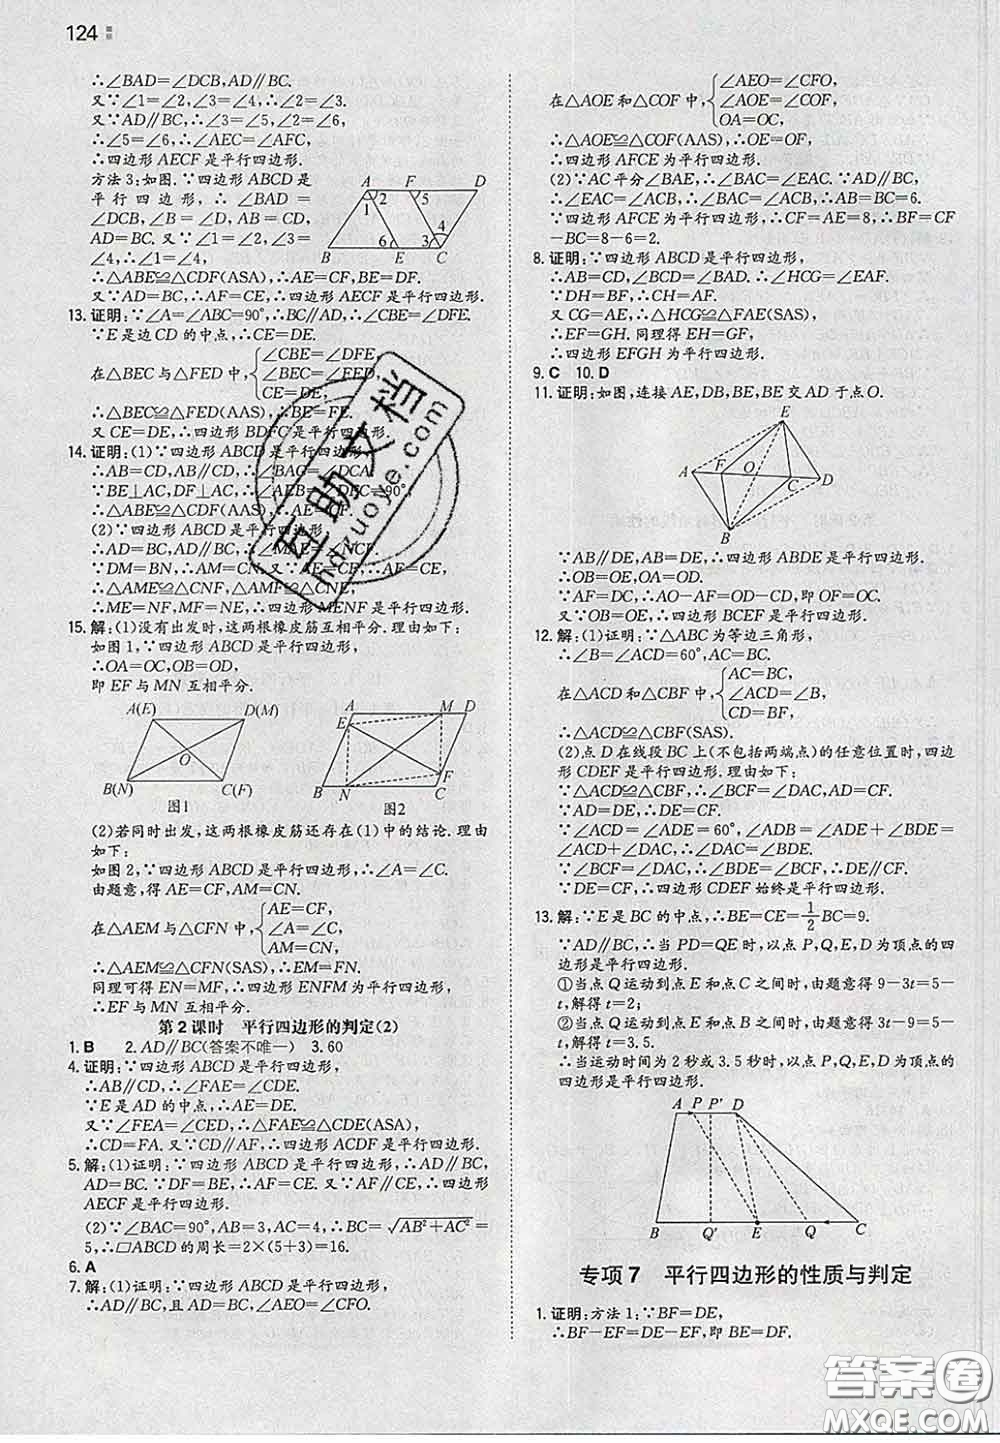 124
∴∠BAD=∠DCB,AD∥BC.
又∵∠1=∠2,∠3=∠4,∴∠2=∠3.
又∵AD∥BC,∴∠3=∠5,∠2=∠6,
∴∠5=∠6,∴∠AEC=∠AFC,
∴四边形AECF是平行四边形.
方法3:如图.∵四边形ABCD是
平行四边形,∴∠BAD=
∠DCB,∠B=∠D,AB=CD,
AD=BC.又∵∠1=∠2,∠3=
∠4,∴∠1=∠4,
A F D
1 2 5
6 3 4
B E C
∴△ABE≌△CDF(ASA),∴AE=CF,BE=DF.
又∵AD=BC,∴AF=CE,∴四边形AECF是平行四边形.
13.证明:∵∠A=∠ABC=90°,∴BC∥AD,∴∠CBE=∠DFE.
∵E是边CD的中点,∴CE=DE.
在△BEC与△FED中,{∠CBE=∠DFE,
∠BEC=∠FED,
CE=DE,
∴△BEC≌△FED(AAS),∴BE=FE.
又CE=DE,∴四边形BDFC是平行四边形.
14.证明:(1)∵四边形ABCD是平行四边形,
∴AB=CD,AB∥CD,∴∠BAC=∠DCA.
∵BE⊥AC,DF⊥AC,∴∠DFC=90°,
∴△
(2)∵四边形ABCD是平行四边形,
∴AB=CD,AB∥CD,∴∠MAE=∠NCF.
∵DM=BN,∴AM=CN.又∵AF=CE,∴AE=CF,
∴△AME≌△CNF,
∴ME=NF,MF=NE,∴四边形MENF是平行四边形.
15.解:(1)没有出发时,这两根橡皮筋互相平分.理由如下:
如图1,∵四边形ABCD是平行四边形,
∴OA=OC,OB=OD,
即EF与MN互相平分.
A(E) D(M)
O
B(N) C(F)
图1
A M D
E
F
B N C
图2
(2)若同时出发,这两根橡皮筋还存在(1)中的结论.理由
如下:
如图2,∵四边形ABCD是平行四边形,∴∠A=∠C.
由题意,得AE=CF,AM=CN.
在△AEM与△CFN中,{AE=CF,
∠A=∠C,
AM=CN,
∴△AEM≌△CFN(SAS),∴EM=FN.
同理可得EN=MF,∴四边形ENFM为平行四边形,
∴EF与MN互相平分.
第2课时 平行四边形的判定(2)
1.B 2.AD∥BC(答案不唯一) 3.60
4.证明:∵四边形ABCD是平行四边形,
∴AB∥CD,∴∠FAE=∠CDE.
∵E是AD的中点,∴AE=DE.
又∵∠FEA=∠CED,∴△FAE≌△CDE(ASA),
∴CD=FA.又∵CD∥AF,∴四边形ACDF是平行四边形.
5.解:(1)证明:∵四边形ABCD是平行四边形,∴AD∥BC,
AD=BC.∵DF=BE,∴AF=CE.又∵AF∥CE,∴四边形
AECF是平行四边形.
(2)∵∠BAC=90°,AB=3,AC=4,∴BC=√AB²+AC²=
5,∴□ABCD的周长=2×(5+3)=16.
6.A
7.解:(1)证明:∵四边形ABCD是平行四边形,
∴AD∥BC,且AD=BC,∴∠AEO=∠CFO.
在△AOE和△COF中,{∠AEO=∠CFO,
∠AOE=∠COF,
OA=OC,
∴△AOE≌△COF(AAS),∴OE=OF,
∴四边形AFCE为平行四边形.
(2)∵AC平分∠BAE,∴∠BAC=∠EAC.∵AE∥CF,
∴∠EAC=∠ACB,∴∠BAC=∠ACB,∴AB=BC=6.
∵四边形AFCE为平行四边形,∴CF=AE=8,∴BF=CF
-BC=8-6=2.
8.证明:∵四边形ABCD是平行四边形,
∴AB=CD,∠BCD=∠BAD.∴∠HCG=∠EAF.
∵DH=BF,∴CH=AF.
又CG=AE,∴△HCG≌△FAE(SAS),
∴EF=GH.同理得EH=GF,
∴四边形EFGH为平行四边形.
9.C 10.D
11.证明:如图,连接AE,DB,BE,BE交AD于点O.
E
A F O C D
B
∵AB∥DE,AB=DE,∴四边形ABDE是平行四边形,
∴OB=OE,OA=OD.
∵AF=DC,∴AO-AF=OD-CD,即OF=OC.
又∵OB=OE,∴四边形BCEF是平行四边形.
12.解:(1)证明:∵△ABC为等边三角形,
∴∠B=∠ACD=60°,AC=BC.
在△ACD和△CBF中,{AC=BC,
∠ACD=∠B,
CD=BF,
∴△ACD≌△CBF(SAS).
(2)点D在线段BC上(不包括两端点)的任意位置时,四边
形CDEF是平行四边形.理由如下:
∵△ACD≌△CBF,∴∠BCF=∠DAC,AD=CF.
∵AD=DE,∴DE=CF.
∵∠ACD=∠ADE=60°,∠BDA=∠ADE+∠BDE=
∠ACD+∠DAC,∴∠DAC=∠BDE.
∵∠BCF=∠DAC,∴∠BCF=∠BDE,∴DE∥CF.
∵DE=CF,∴四边形CDEF始终是平行四边形.
13.解:∵E是BC的中点,∴BE=CE=1/2BC=9.
∵AD∥BC,∴当PD=QE时,以点P,Q,E,D为顶点的四
边形是平行四边形.
①当点Q运动到点E和点C之间时,由题意得9-3t=5-
t,解得t=2;
②当点Q运动到点E和点B之间时,由题意得3t-9=5-
t,解得t=3.5.
∴当运动时间为2秒或3.5秒时,以点P,Q,E,D为顶点的四
边形是平行四边形.
A P P′ D
B Q′ E Q C
专项7 平行四边形的性质与判定
1.证明:方法1:∵BF=DE,
∴BF-EF=DE-EF,即BE=DF.
互助文档
hdzuoye.com
答案圈
MXQE.COM